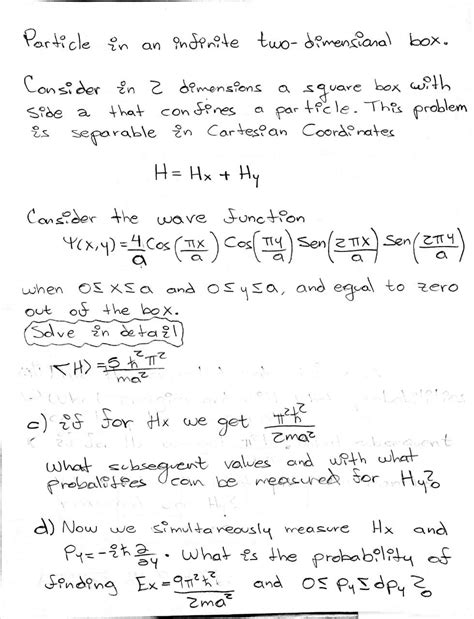 Particle in an infinite two-dimensional box.
Consider in 2 dimensions a square box with
side a that confines a particle. This problem
is separable in Cartesian Coordinates
H = Hx + Hy
Consider the wave function
Ψ(x,y) = 4/a Cos(πx/a) Cos(πy/a) Sen(2πx/a) Sen(2πy/a)
when 0≤x≤a and 0≤y≤a, and equal to zero
out of the box.
Solve in detail
<H> = 5ℏ²π²/ma²
c) if for Hx we get π²ℏ²/2ma²
what subsequent values and with what
probalities can be measured for Hy?
d) Now we simultaneously measure Hx and
Py=-iℏ ∂/∂y. What is the probability of
finding Ex = 9π²ℏ²/2ma² and 0≤Py≤dpy?